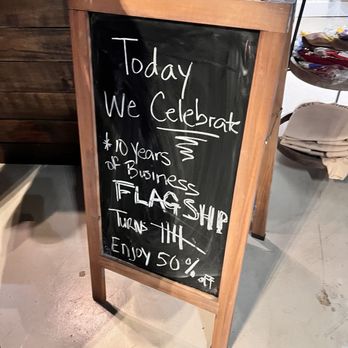 Today
We Celebrate
* 10 Years
of Business
FLAGSHIP
Turns 𝍸
Enjoy 50% off